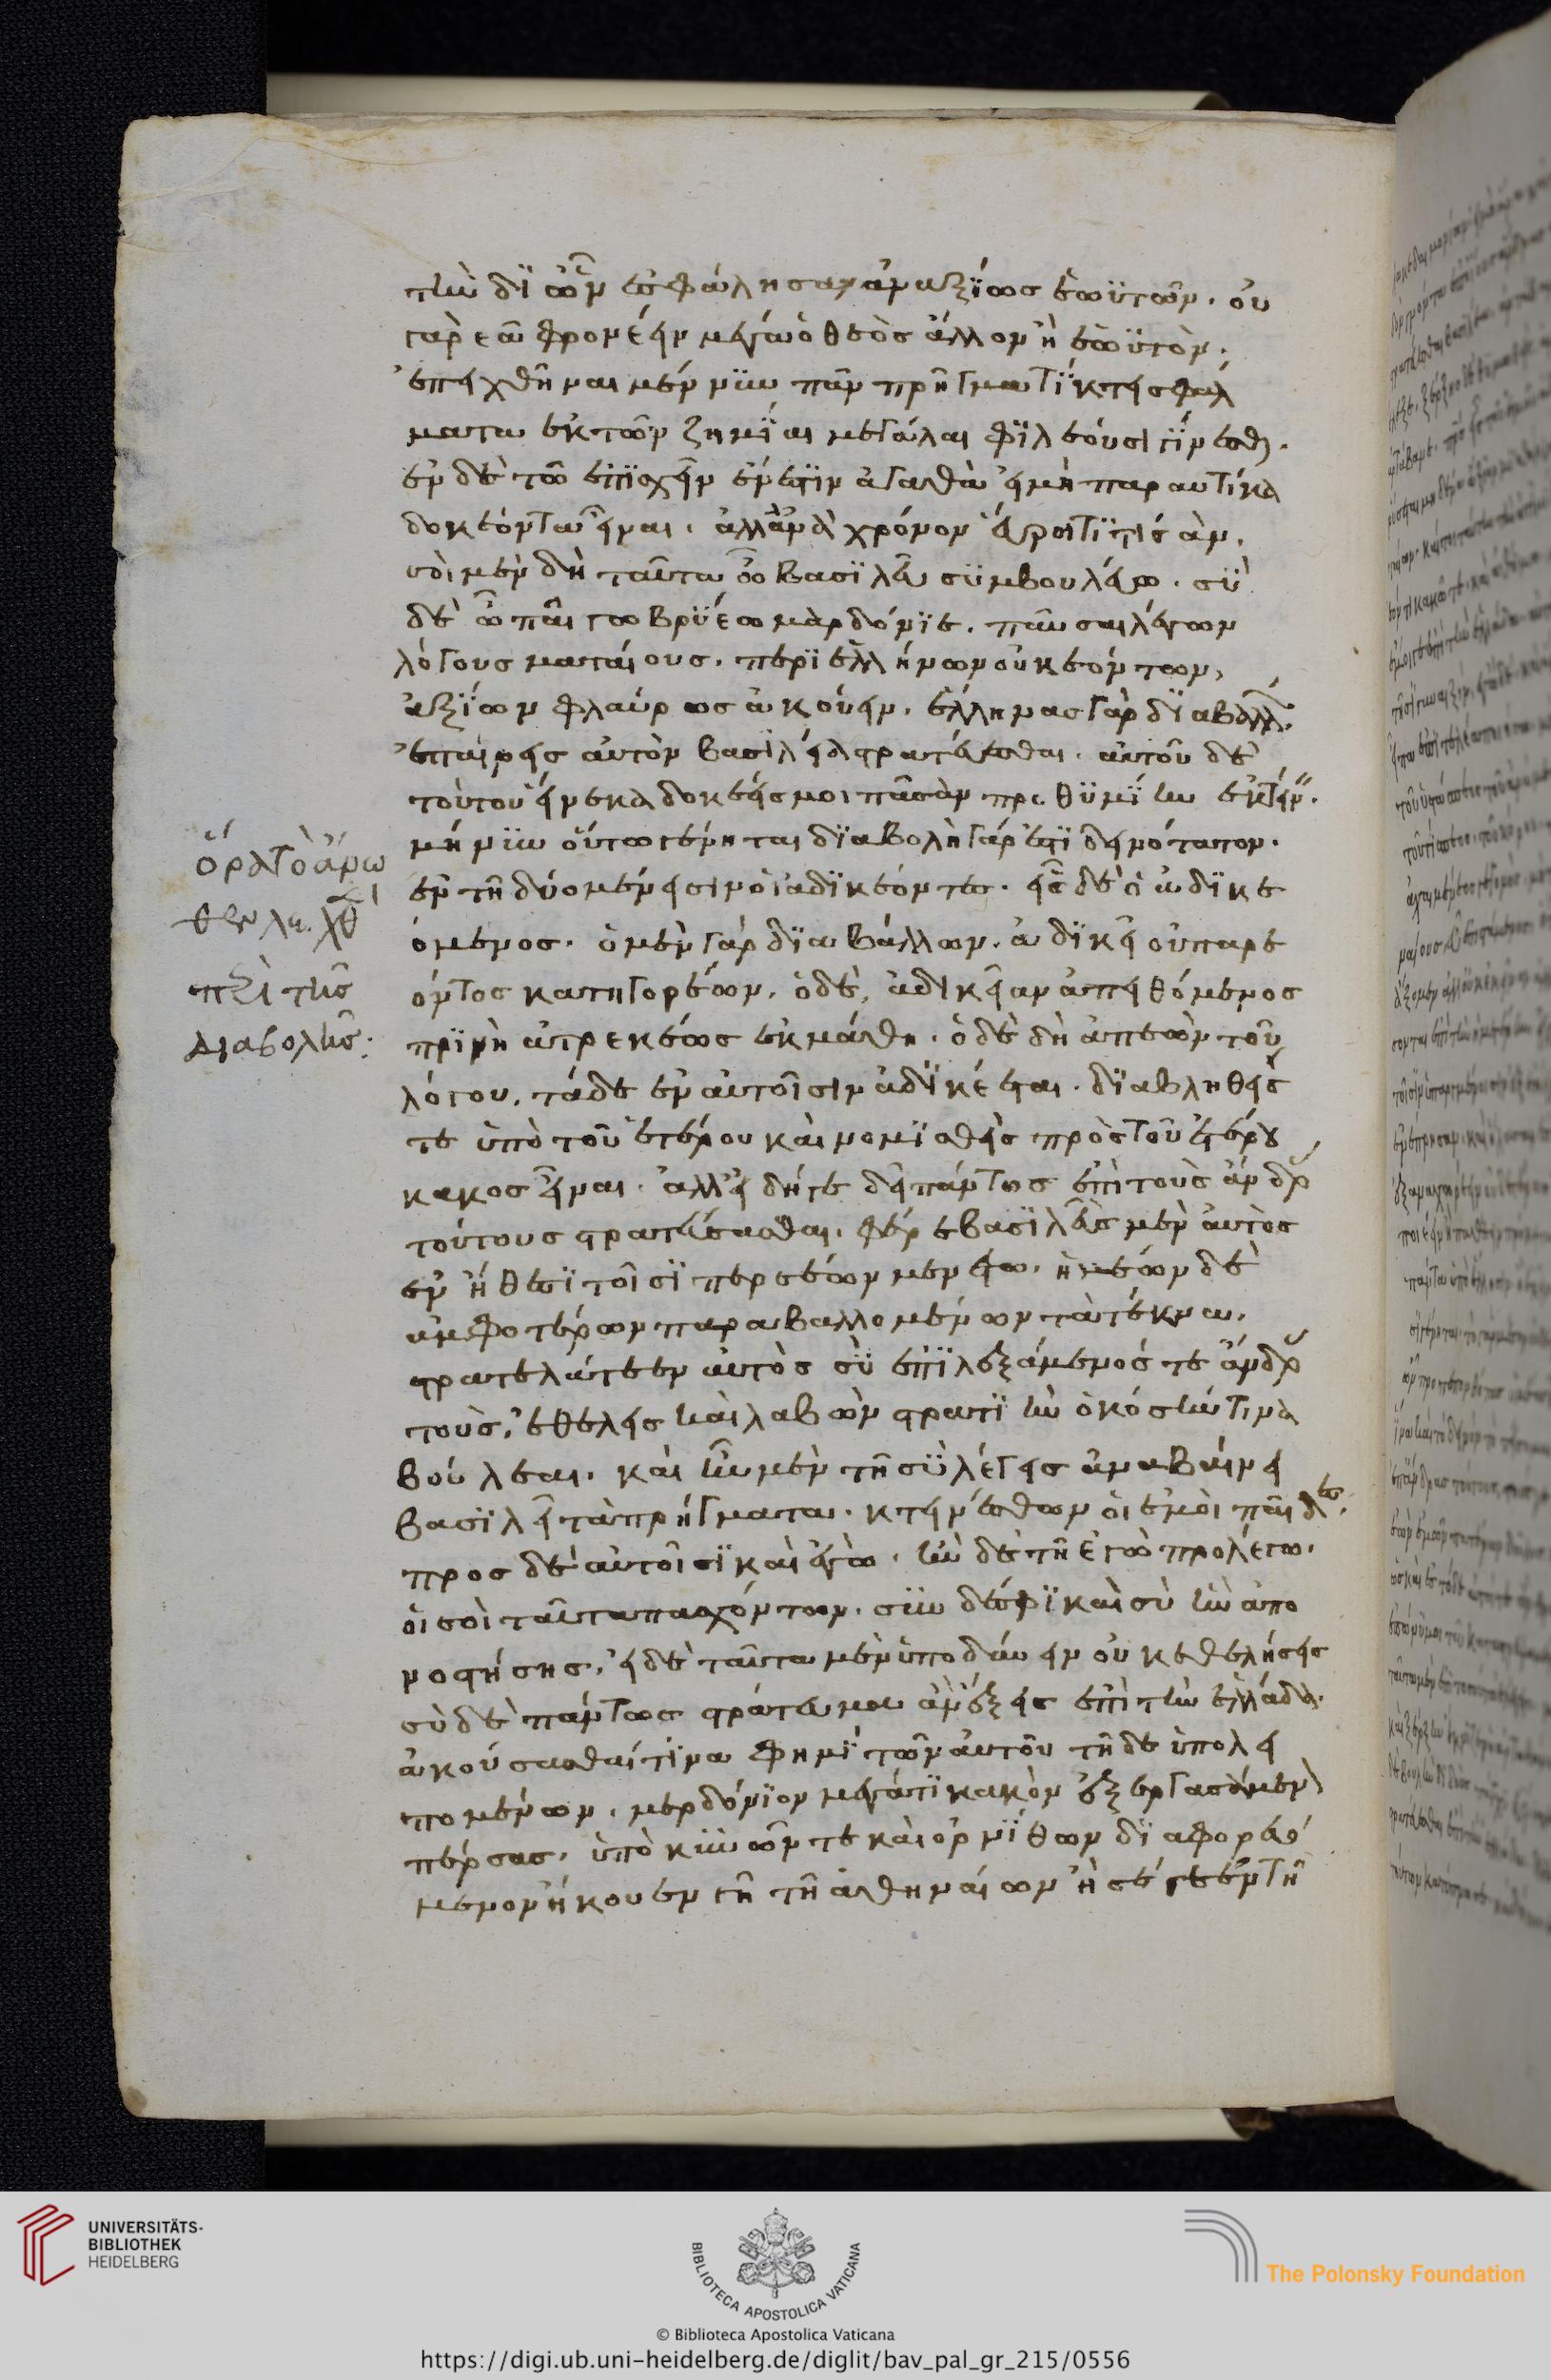 τὴν δϊ ὧν ἐσφάλησαν ἀναξΐως ἑωϋτῶν. οὐ
γὰρ ἐᾶ φρονέειν μέγα ὁ θεὸς ἄλλον ἢ ἑωϋτὸν.
ἐπειχθῆναι μέν νϋν πᾶν πρῆγμα τΐκτει σφάλ
ματα ἐκ τῶν ζημΐαι μεγάλαι φϊλέουσι γΐνεσθαι.
ἐν δὲ τῶ ἐπϊσχεῖν ἔνεστϊν ἀγαθὰ εἰ μὴ παραυτίκα
δοκέοντα εἶναι. ἀλλ' ἀνὰ χρόνον εὕροι τϊ τις ἀν.
σοὶ μὲν δὴ ταῦτα ὦ βασϊλεῦ συμβουλεύω. σϋ
δὲ ὦ παῖ γωβρϋέω μαρδόνϊε. παῦσαι λέγων
λόγους ματαίους. περϊ ἑλλήνων οὐκ ἐόντων,
ἀξΐων φλαύρως ἀκούειν. ἕλληνας γὰρ δϊαβάλλων
ἐπαίρεις αὐτὸν βασιλέα στρατεύεσθαι. αὐτοῦ δὲ
τούτου εἵνεκα δοκέεις μοι πᾶσαν προθϋμΐην ἐκτείνειν.
μή νϋν οὕτω γένηται δϊαβολὴ γάρ ἐστϊ δεινότατον.
ἐν τῆ δύο μέν εἰσιν οἱ ἀδϊκέοντες. εἷς δὲ ὁ ἀδϊκε
όμενος. ὁ μὲν γὰρ δϊαβάλλων. ἀδϊκεῖ οὐ παρε
όντος κατηγορέων. ὁ δὲ, ἀδικεῖ ἀναπειθόμενος
πρϊν ἢ ἀτρεκέως ἐκμάθη. ὁ δὲ δὴ ἀπεὼν τοῦ
λόγου, τάδε ἐν αὐτοῖσιν ἀδϊκέεται. δϊαβληθείς
τε ὑπὸ τοῦ ἑτέρου καὶ νομϊσθεὶς πρὸς τοῦ ἑτέρου
κακος εἶναι. ἀλλ' εἰ δή γε δεῖ πάντως ἐπὶ τοὺς ἄνδρας
τούτους στρατεύεσθαι. φέρε βασϊλεὺς μὲν αὐτὸς
ἐν ἤθεσϊ τοῖσϊ περσέων μενέτω. ἡμέων δὲ
ἀμφοτέρων παραβαλλομένων τὰ τέκνα.
στρατηλάτεεν αὐτὸς σϋ ἐπϊλεξάμενός τε ἄνδρας
τοὺς ἐθέλεις καὶ λαβὼν στρατϊὴν ὁκόσην τινὰ
βούλεαι. καὶ ἢν μὲν τῆ σϋ λέγεις ἀναβαίνει
βασϊλεῖ τὰ πρήγματα. κτεινέσθων οἱ ἐμοὶ παῖδες.
προς δὲ αὐτοῖσϊ καὶ ἐγὼ. ἢν δὲ τῆ ἐγὼ προλέγω.
οἱ σοὶ ταῦτα πασχόντων. σϋν δέ σφϊ καὶ σὺ ἢν ἀπο
νοστήσης. εἰ δὲ ταῦτα μὲν ὑποδύνειν οὐκ ἐθελήσεις
σὺ δὲ πάντως στράτευμα ἀνάξεις ἐπὶ τὴν ἑλλάδα.
ἀκούσεσθαί τϊνα φημϊ τῶν αὐτοῦ τῆδε ὑπολει
πομένων. μαρδόνϊον μέγα τϊ κακὸν ἐξεργασάμενον
πέρσας. ὑπὸ κϋνῶν τε καὶ ὀρνΐθων δϊαφορεύ
μενον ἤ κου ἐν γῆ τῆ ἀθηναίων ἢ σέ γε ἐν τῆ
ὅρα τὸ ἄνω
περὶ τῆς
διαβολῆς:
UNIVERSITÄTS-
BIBLIOTHEK
HEIDELBERG
BIBLIOTECA APOSTOLICA VATICANA
The Polonsky Foundation
© Biblioteca Apostolica Vaticana
https://digi.ub.uni-heidelberg.de/diglit/bav_pal_gr_215/0556